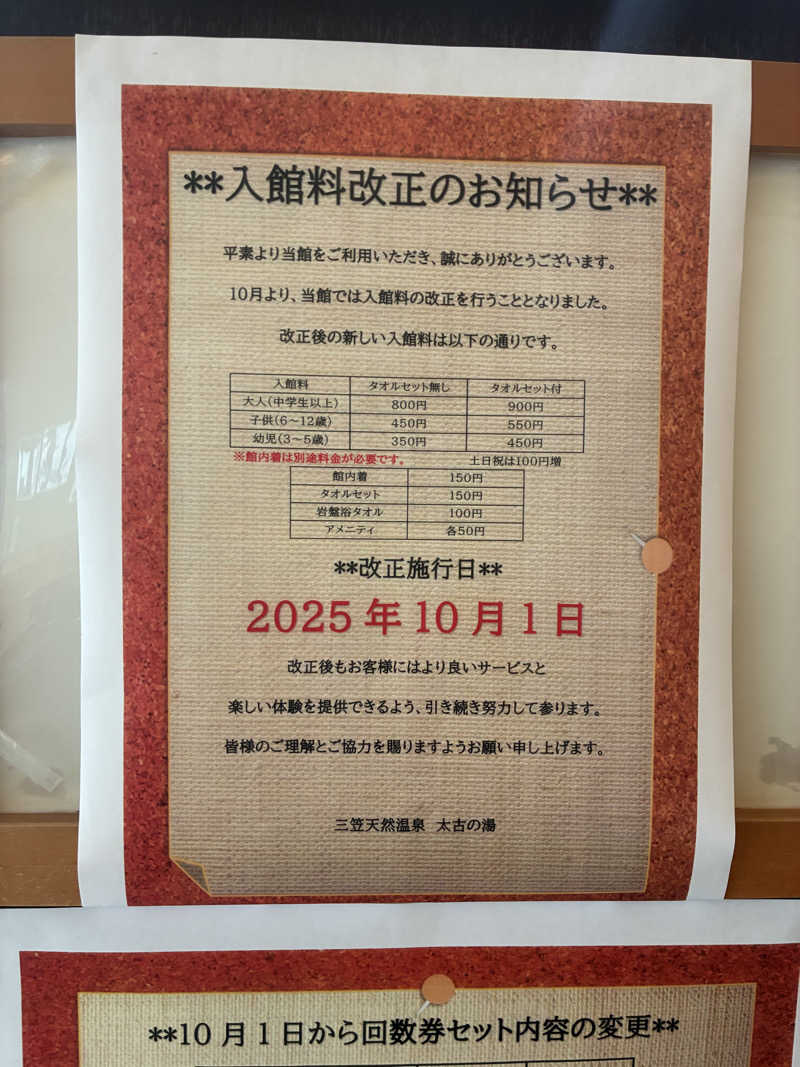 **入館料改正のお知らせ**
平素より当館をご利用いただき、誠にありがとうございます。
10月より、当館では入館料の改正を行うこととなりました。
改正後の新しい入館料は以下の通りです。
入館料 タオルセット無し タオルセット付
大人(中学生以上) 800円 900円
子供(6～12歳) 450円 550円
幼児(3～5歳) 350円 450円
※館内着は別途料金が必要です。 土日祝は100円増
館内着 150円
タオルセット 150円
岩盤浴タオル 100円
アメニティ 各50円
**改正施行日**
2025年10月1日
改正後もお客様にはより良いサービスと
楽しい体験を提供できるよう、引き続き努力して参ります。
皆様のご理解とご協力を賜りますようお願い申し上げます。
三笠天然温泉 太古の湯
**10月1日から回数券セット内容の変更**